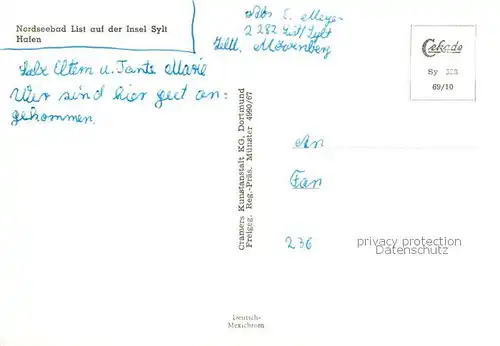 Nordseebad List auf der Insel Sylt
Hafen
Abs E. Meyer
2 282 List/Sylt
Zeltl. Möwenberg
Cekade
Sy 322
69/10
Liebe Eltern u. Tante Marie
Wir sind hier gut an=
gekommen.
Cramers Kunstanstalt KG, Dortmund
Freigeg. Reg.-Präs. Münster 4990/67
An
Fam
236
privacy protection
Datenschutz
Deutsch-
Mexichrom